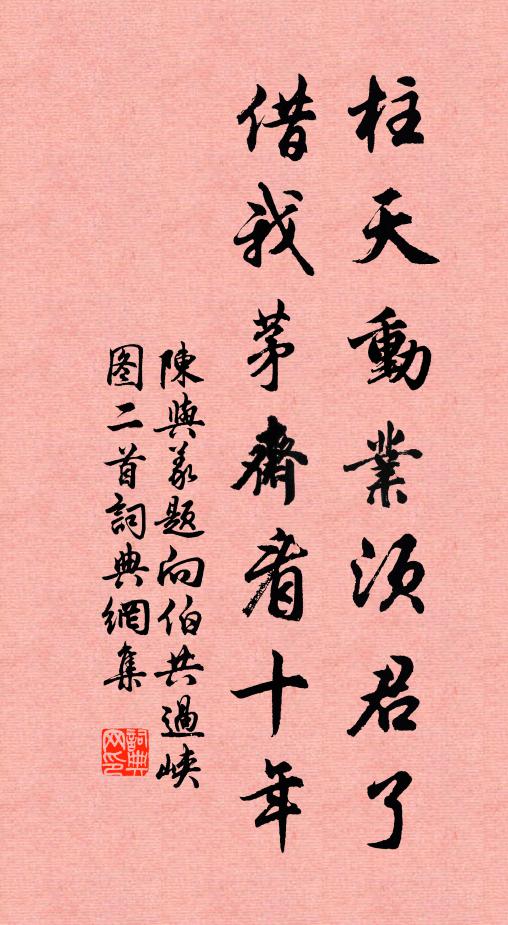 柱天動業須君了
借我茅齋看十年
陳與義題向伯共過峽
图二首詞典網集
詞典
网印